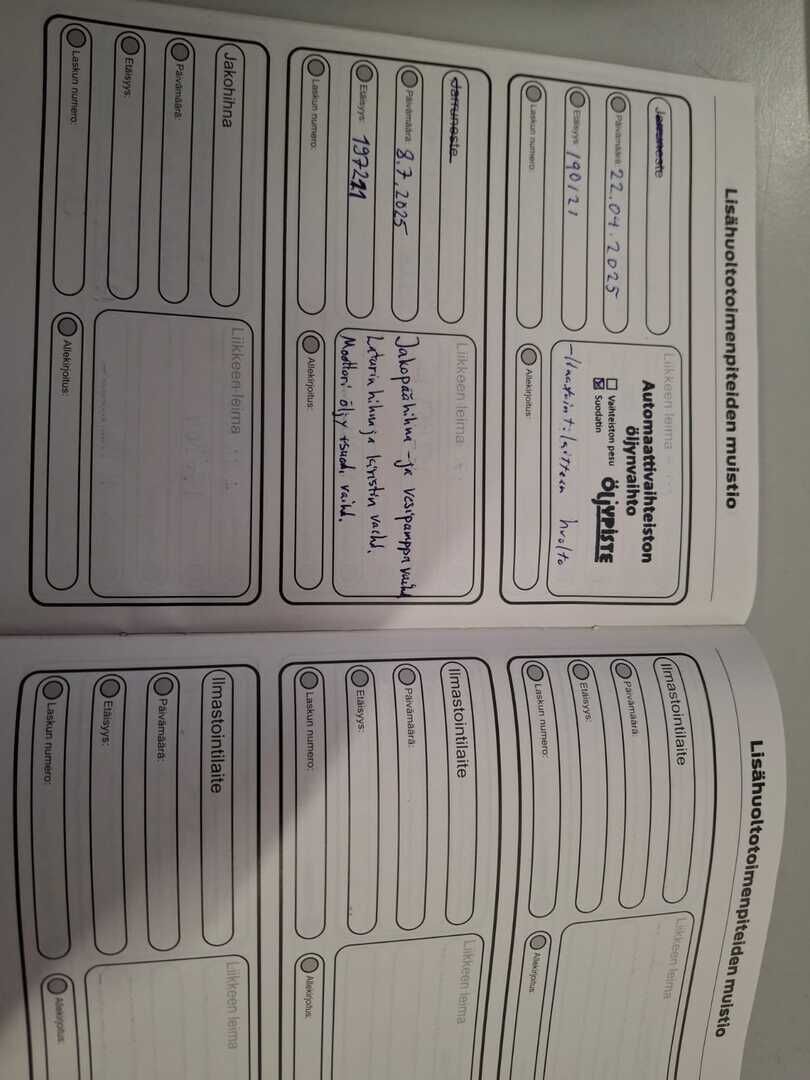 Lisähuoltotoimenpiteiden muistio
Jarruneste
Päivämäärä: 22.04.2025
Etäisyys: 190121
Laskun numero:
Liikkeen leima
Automaattivaihteiston
öljynvaihto
Vaihteiston pesu
Suodatin
ÖLJYPISTE
-Ilmastointilaitteen huolto
Allekirjoitus:
Jarruneste
Päivämäärä: 8.7.2025
Etäisyys: 197211
Laskun numero:
Liikkeen leima
Jakopäähihna -ja vesipumppu vaihd
Laturin hihna ja kiristin vaihd.
Moottori öljy +suod. vaihd.
Allekirjoitus:
Jakohihna
Päivämäärä:
Etäisyys:
Laskun numero:
Liikkeen leima
Allekirjoitus:
Lisähuoltotoimenpiteiden muistio
Ilmastointilaite
Päivämäärä:
Etäisyys:
Laskun numero:
Liikkeen leima
Allekirjoitus:
Ilmastointilaite
Päivämäärä:
Etäisyys:
Laskun numero:
Liikkeen leima
Allekirjoitus:
Ilmastointilaite
Päivämäärä:
Etäisyys:
Laskun numero:
Liikkeen leima
Allekirjoitus: